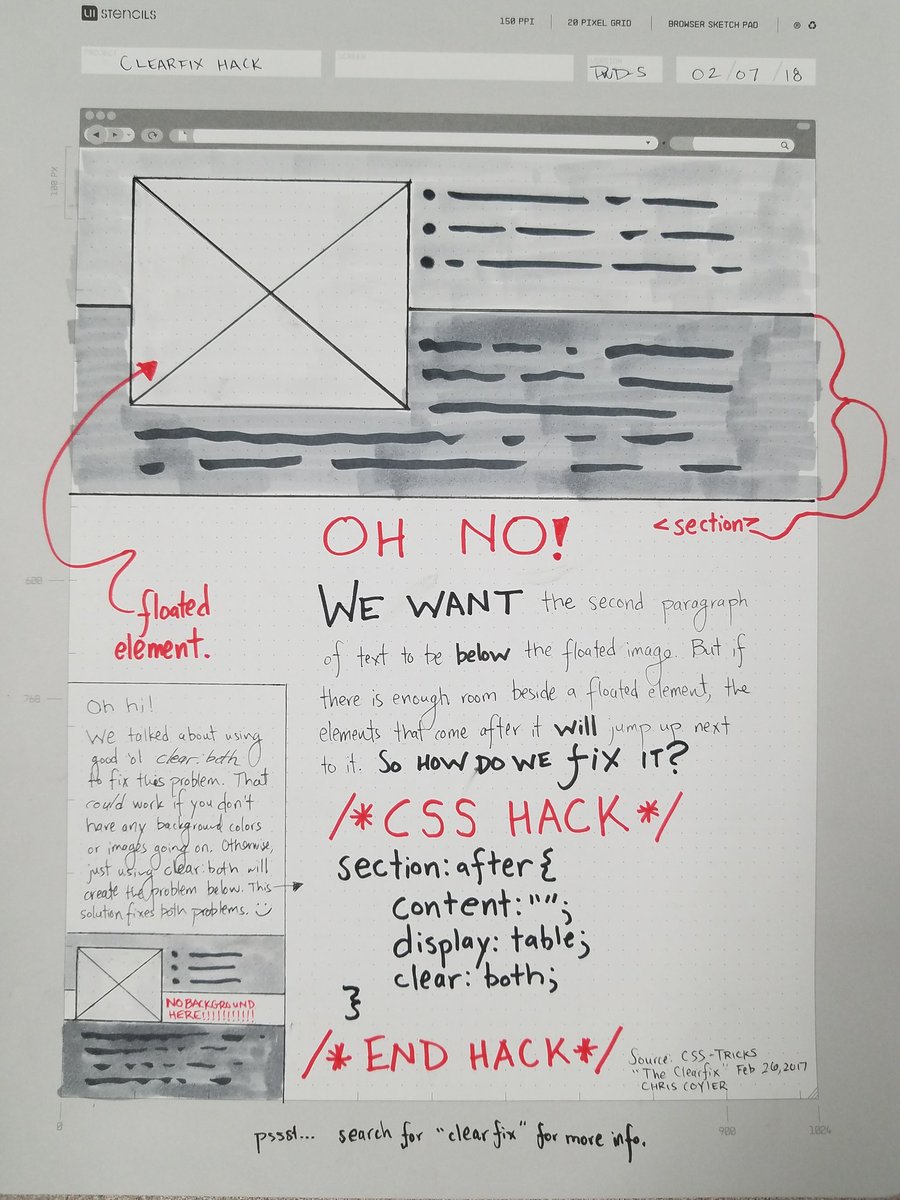 UI STENCILS
150 PPI
20 PIXEL GRID
BROWSER SKETCH PAD
CLEARFIX HACK
SCREEN
02/07/18
100 PX
OH NO!
<section>
floated
element.
WE WANT the second paragraph
of text to be below the floated image. But if
there is enough room beside a floated element, the
elements that come after it will jump up next
to it. SO HOW DO WE fix IT?
600
768
Oh hi!
We talked about using
good 'ol clear:both
to fix this problem. That
could work if you don't
have any background colors
or images going on. Otherwise,
just using clear:both will
create the problem below. This
solution fixes both problems.
NO BACKGROUND
HERE!!!!!!!!!!!
/*CSS HACK*/
section:after{
content:"";
display: table;
clear: both;
}
/*END HACK*/
Source: CSS-TRICKS
"The Clearfix" Feb 26,2017
CHRIS COYIER
0
900
1024
pssst... search for "clearfix" for more info.